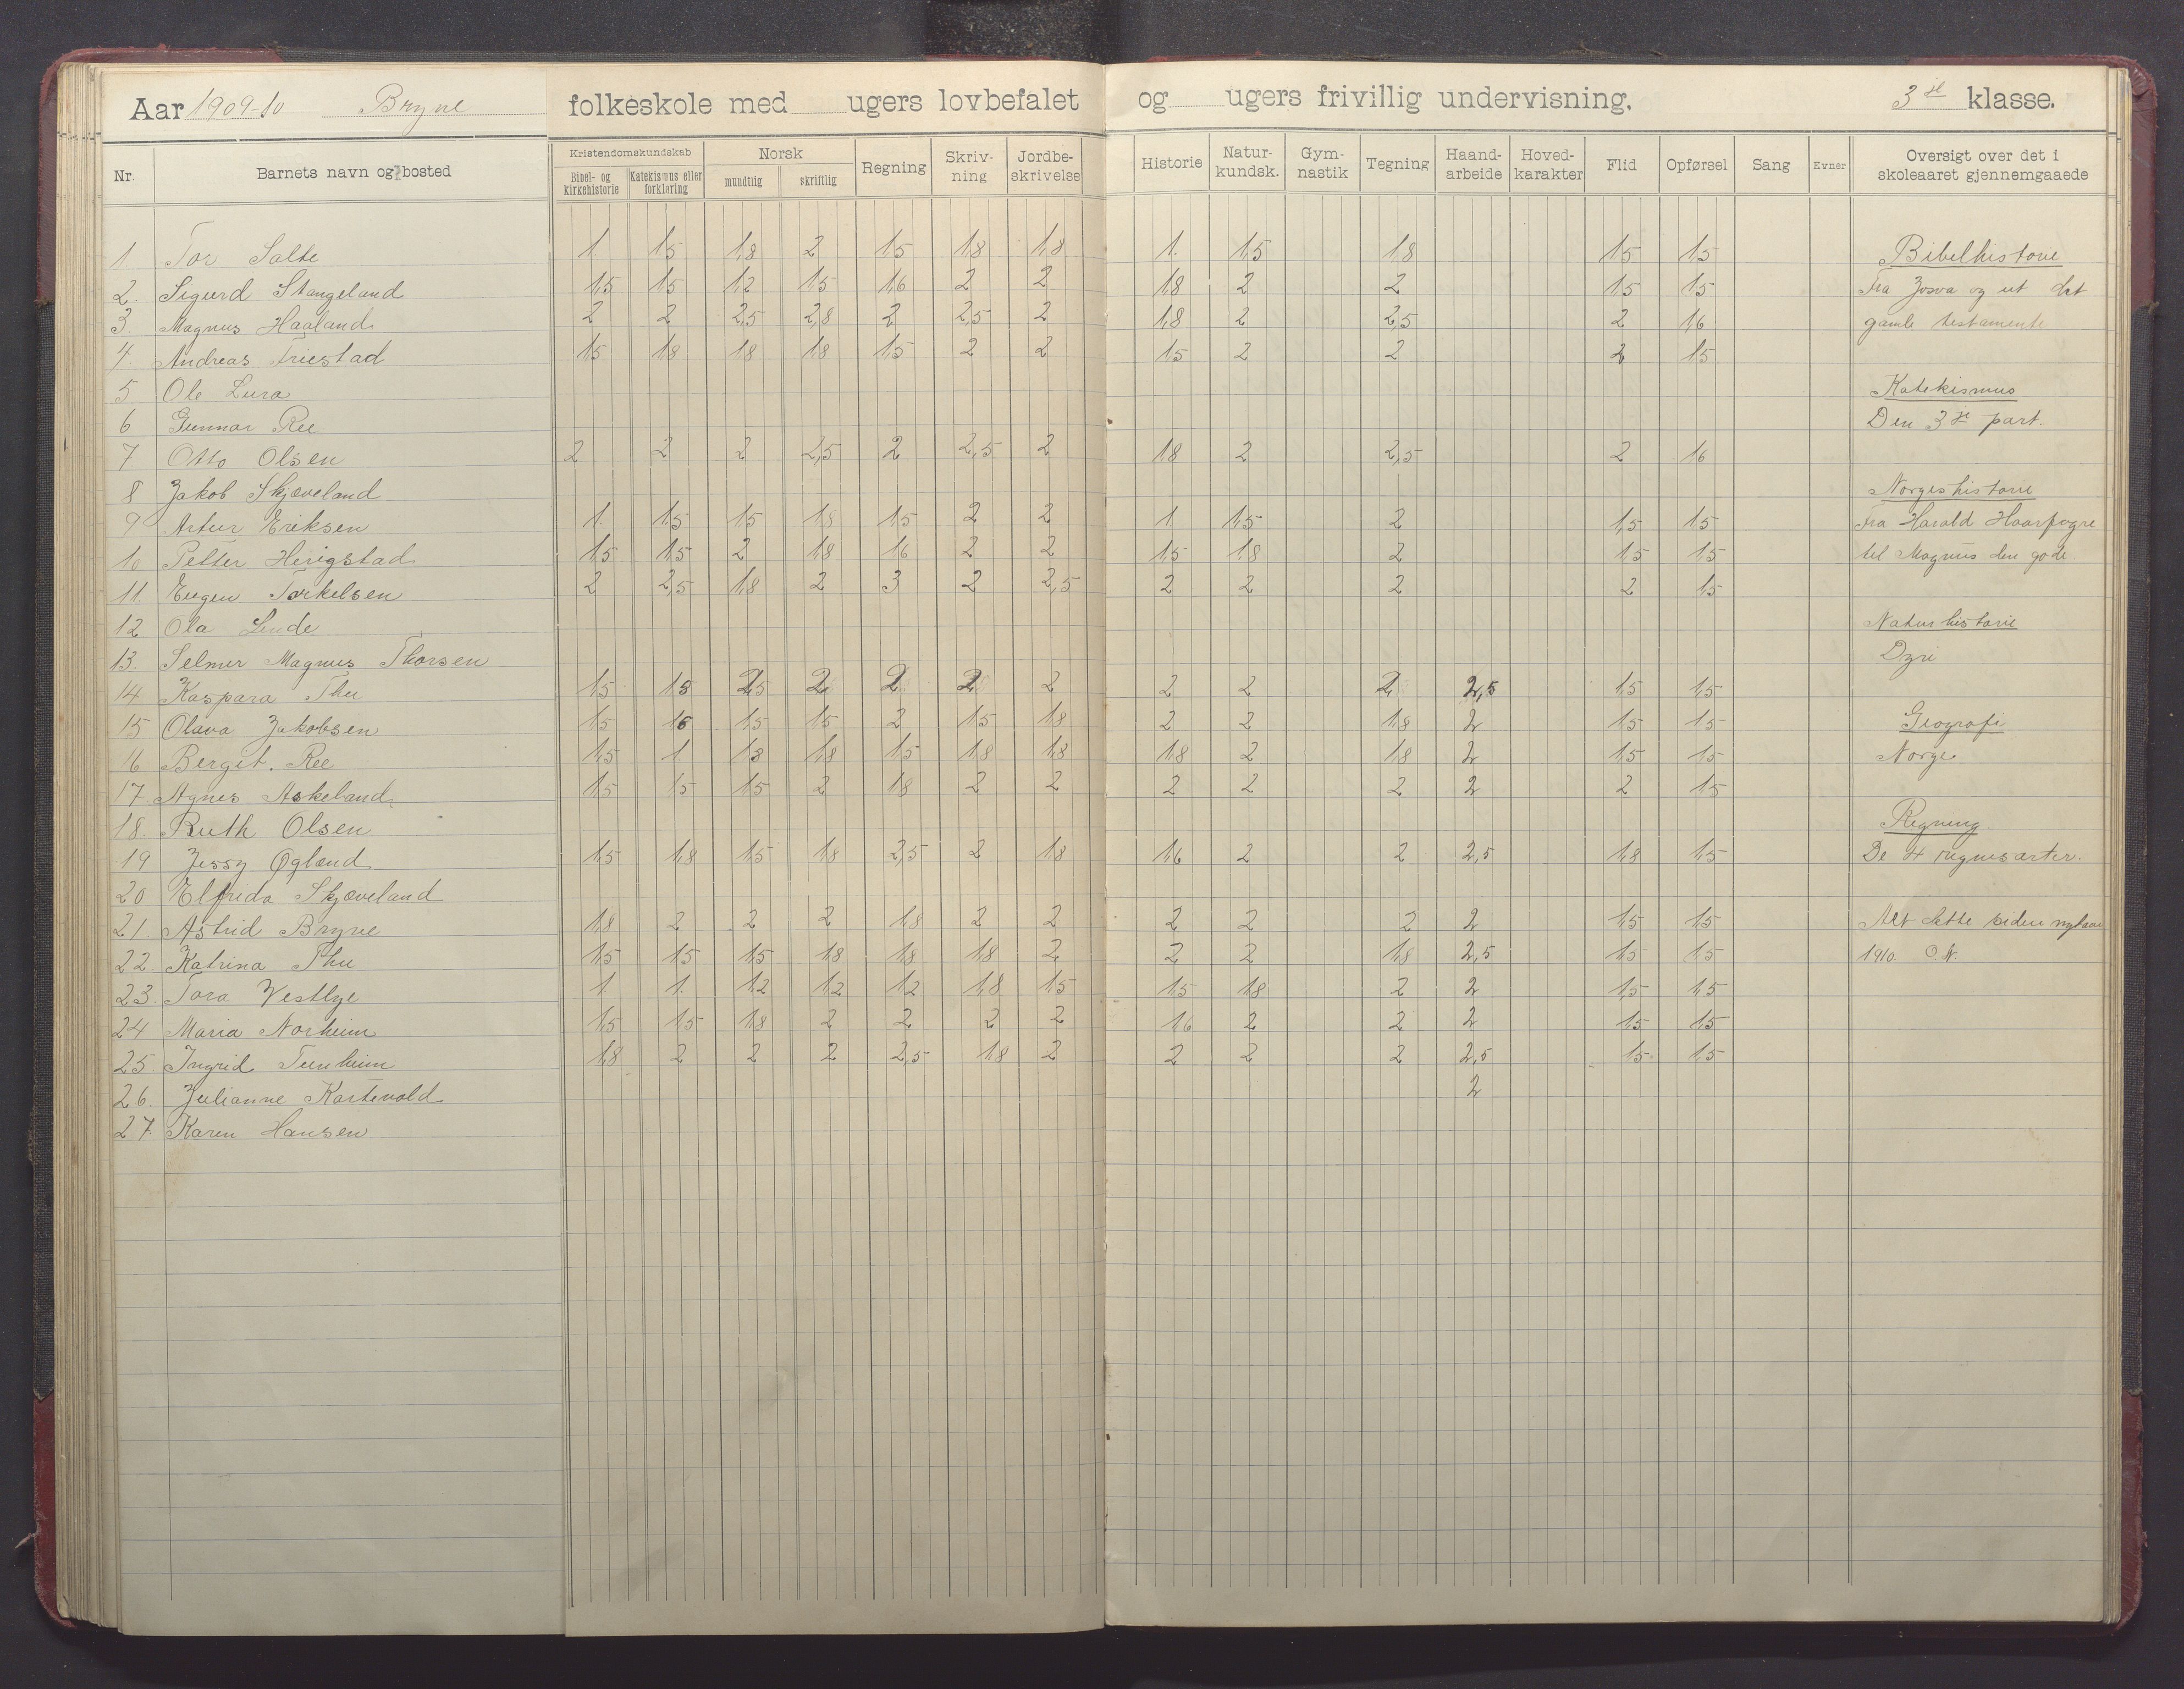 Aar 1909-10 Bryne folkeskole med ugers lovbefalet og ugers frivillig undervisning. 3je klasse.
Nr. Barnets navn og bosted Kristendomskundskab Norsk Regning Skriv-ning Jordbe-skrivelse Historie Natur-kundsk. Gym-nastik Tegning Haand-arbeide Hoved-karakter Flid Opførsel Sang Evner Oversigt over det i skoleaaret gjennemgaaede
Bibel- og kirkehistorie Katekismus eller forklaring mundtlig skriftlig
1 Tor Salte 1. 1,5 1,8 2 1,5 1,8 1,8 1. 1,5 1,8 1,5 1,5 Bibelhistorie
2. Sigurd Stangeland 1,5 1,5 1,2 1,5 1,6 2 2 1,8 2 2 1,5 1,5 Fra Josva og ut det
3. Magnus Haaland 2 2 2,5 2,8 2 2,5 2 1,8 2 2,5 2 1,6 gamle testamente
4. Andreas Friestad 1,5 1,8 1,8 1,8 1,5 2 2 1,5 2 2 2 1,5
5 Ole Lura Katekismus
6 Gunnar Ree Den 3je part.
7. Otto Olsen 2 2 2 2,5 2 2,5 2 1,8 2 2,5 2 1,6
8 Jakob Skjæveland Norgeshistorie
9 Artur Eriksen 1. 1,5 1,5 1,8 1,5 2 2 1. 1,5 2 1,5 1,5 Fra Harald Haarfagre
10 Petter Herigstad 1,5 1,5 2 1,8 1,6 2 2 1,5 1,8 2 1,5 1,5 til Magnus den gode.
11. Eugen Torkelsen 2 2,5 1,8 2 3 2 2,5 2 2 2 2 1,5
12 Ola Lende Naturhistorie
13. Selmer Magnus Thorsen Dyri
14 Kaspara Thu 1,5 1,8 2,5 2 2 2 2 2 2 2 2,5 1,5 1,5
15 Olava Jakobsen 1,5 1,6 1,5 1,5 2 1,5 1,8 2 2 1,8 2 1,5 1,5 Geografi
16 Bergit. Ree 1,5 1 1,8 1,8 1,5 1,8 1,8 1,8 2 1,8 2 1,5 1,5 Norge
17. Agnes Askeland 1,5 1,5 1,5 2 1,8 2 2 2 2 2 2 2 1,5
18. Ruth Olsen Regning
19 Jessy Øglænd 1,5 1,8 1,5 1,8 2,5 2 1,8 1,6 2 2 2,5 1,8 1,5 De 4 regnesarter.
20 Elfrida Skjæveland
21. Astrid Bryne 1,8 2 2 2 1,8 2 2 2 2 2 2 1,5 1,5 Alt dette siden nytaar
22. Katrina Thu 1,5 1,5 1,5 1,8 1,8 1,8 2 2 2 1,8 2,5 1,5 1,5 1910.
23. Tora Vestlye 1. 1. 1,2 1,2 1,2 1,8 1,5 1,5 1,8 2 2 1,5 1,5
24 Maria Norheim 1,5 1,5 1,8 2 2 2 2 1,6 2 2 2 1,5 1,5
25. Ingrid Tunheim 1,8 2 2 2 2,5 1,8 2 2 2 2 2,5 1,5 1,5
26. Julianne Kartevold 2
27. Karen Hansen